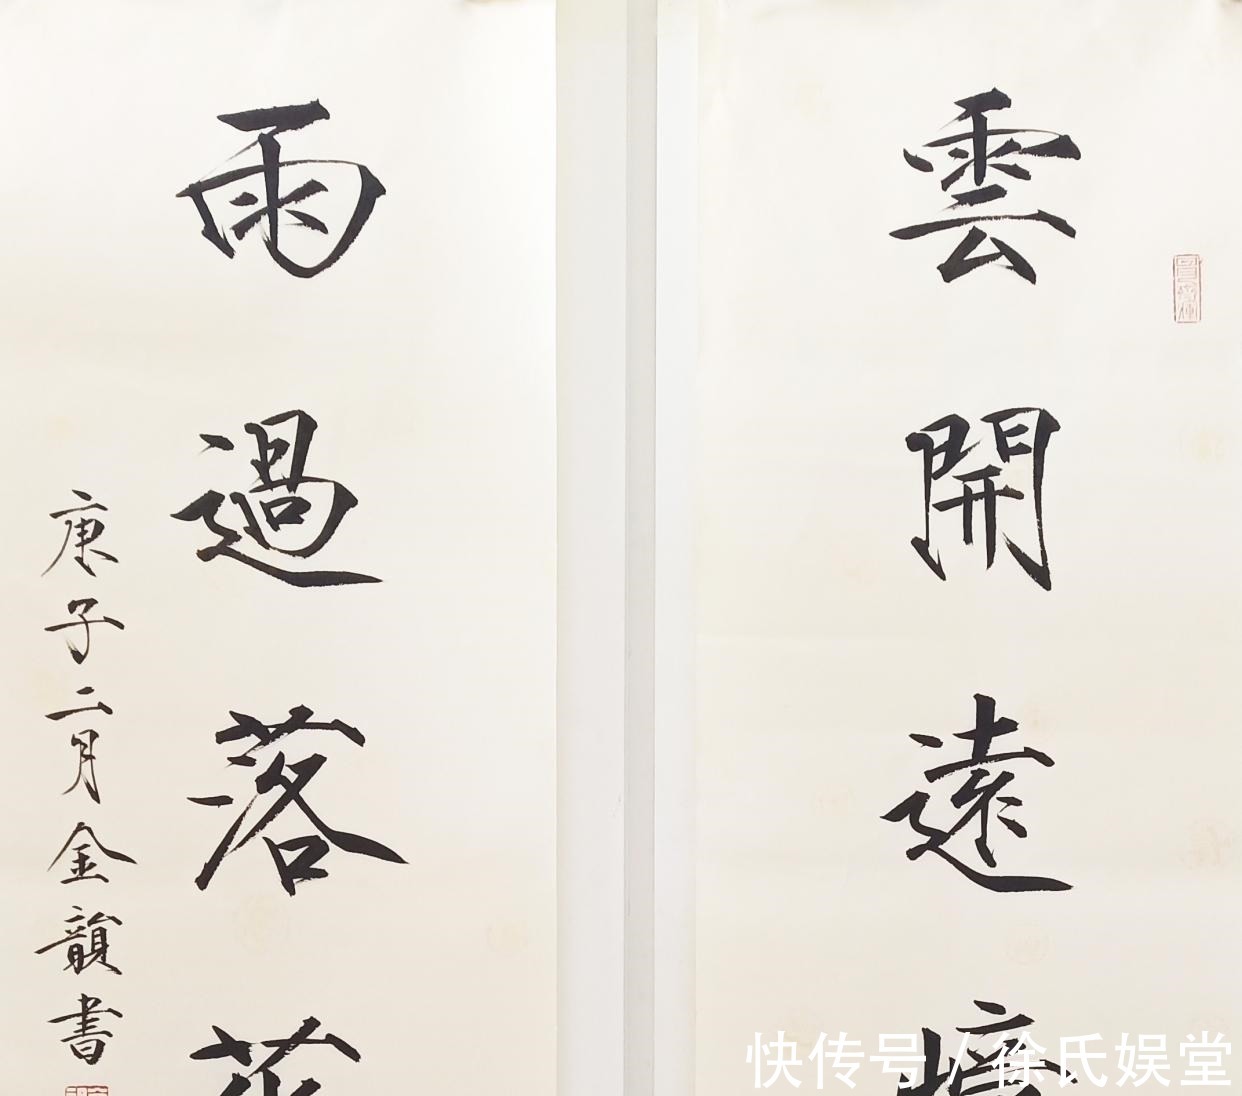 雲開遠
雨過落
庚子二月金韻書
快传号/徐氏娱堂